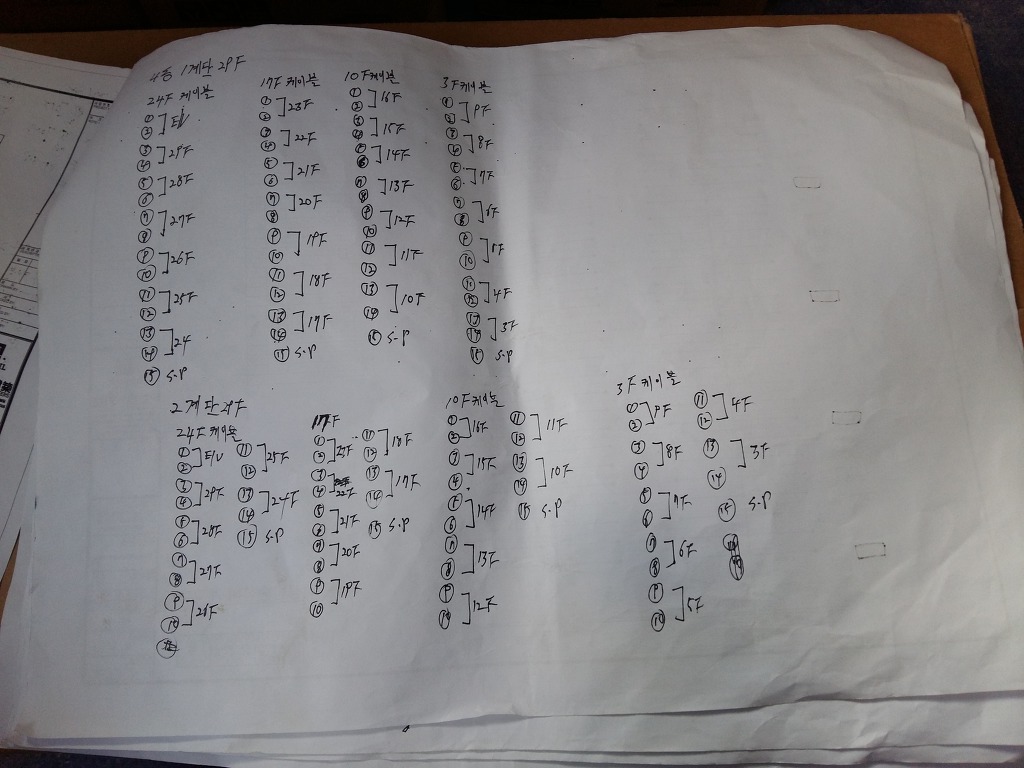 4동 1계단 29F
24F 케이블
① ② ] E/V
③ ④ ] 29F
⑤ ⑥ ] 28F
⑦ ⑧ ] 27F
⑨ ⑩ ] 26F
⑪ ⑫ ] 25F
⑬ ⑭ ] 24
⑮ S.P
17F 케이블
① ② ] 23F
③ ④ ] 22F
⑤ ⑥ ] 21F
⑦ ⑧ ] 20F
⑨ ⑩ ] 19F
⑪ ⑫ ] 18F
⑬ ⑭ ] 17F
⑮ S.P
10F 케이블
① ② ] 16F
③ ④ ] 15F
⑤ ⑥ ] 14F
⑦ ⑧ ] 13F
⑨ ⑩ ] 12F
⑪ ⑫ ] 11F
⑬ ⑭ ] 10F
⑮ S.P
3F 케이블
① ② ] 9F
③ ④ ] 8F
⑤ ⑥ ] 7F
⑦ ⑧ ] 6F
⑨ ⑩ ] 5F
⑪ ⑫ ] 4F
⑬ ⑭ ] 3F
⑮ S.P
2계단 29F
24F 케이블
① ② ] E/V
③ ④ ] 29F
⑤ ⑥ ] 28F
⑦ ⑧ ] 27F
⑨ ⑩ ] 26F
⑪ ⑫ ] 25F
⑬ ⑭ ] 24F
⑮ S.P
17F
① ② ] 23F
③ ④ ] 22F
⑤ ⑥ ] 21F
⑦ ⑧ ] 20F
⑨ ⑩ ] 19F
⑪ ⑫ ] 18F
⑬ ⑭ ] 17F
⑮ S.P
10F 케이블
① ② ] 16F
③ ④ ] 15F
⑤ ⑥ ] 14F
⑦ ⑧ ] 13F
⑨ ⑩ ] 12F
⑪ ⑫ ] 11F
⑬ ⑭ ] 10F
⑮ S.P
3F 케이블
① ② ] 9F
③ ④ ] 8F
⑤ ⑥ ] 7F
⑦ ⑧ ] 6F
⑨ ⑩ ] 5F
⑪ ⑫ ] 4F
⑬ ⑭ ] 3F
⑮ S.P